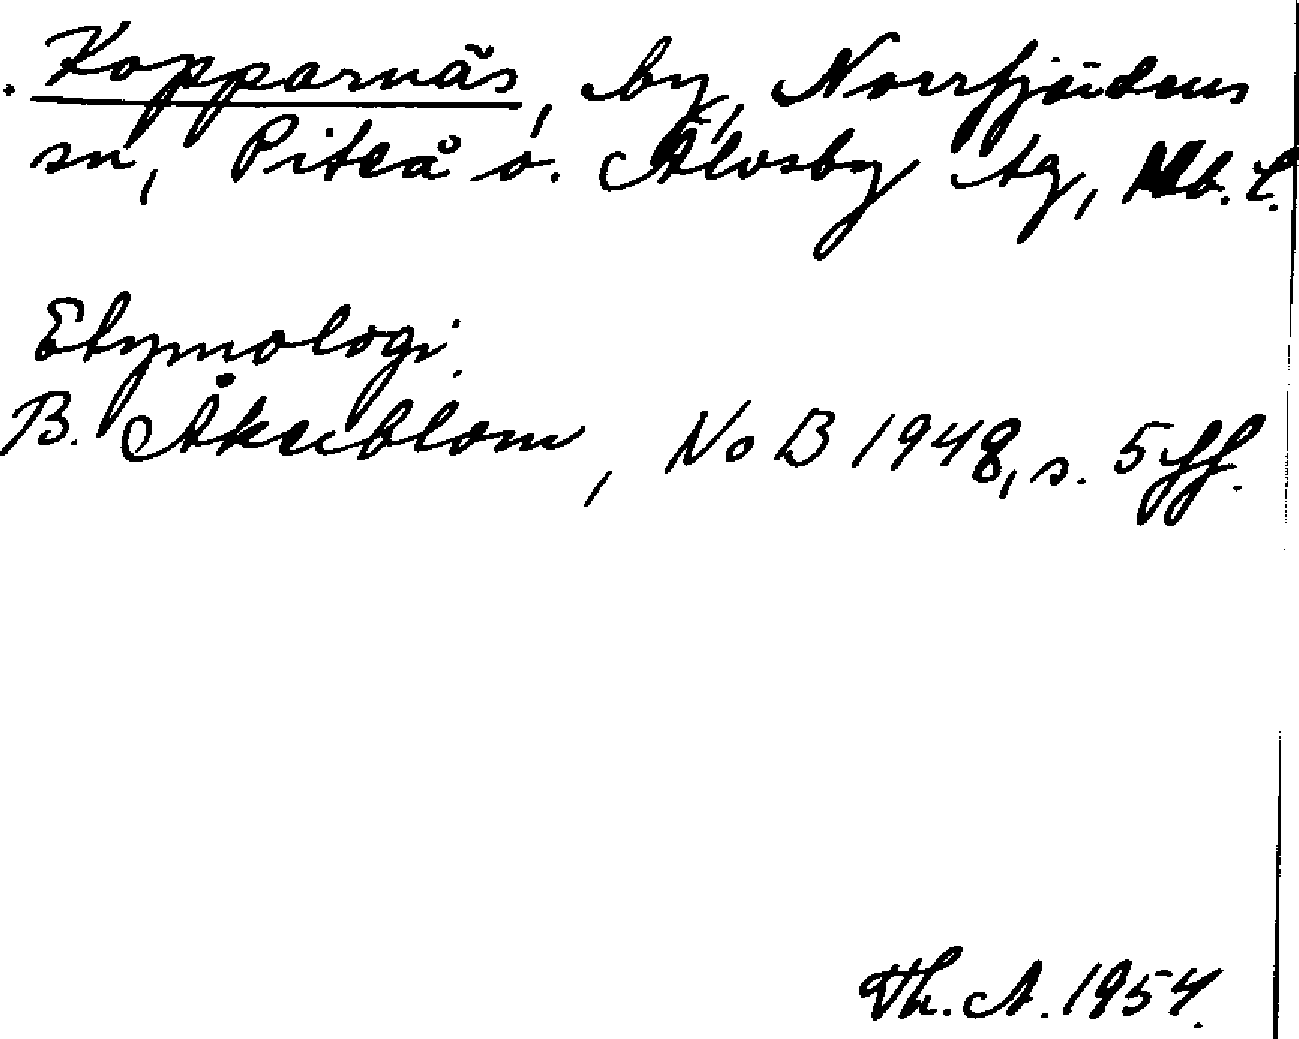 Kopparnäs, by, Norrfjärdens
sn, Piteå o. Älvsby tg, Nb. l.
Etymologi.
B. Åkerblom, NoB 1948, s. 5 ff.
Th. A. 1954.